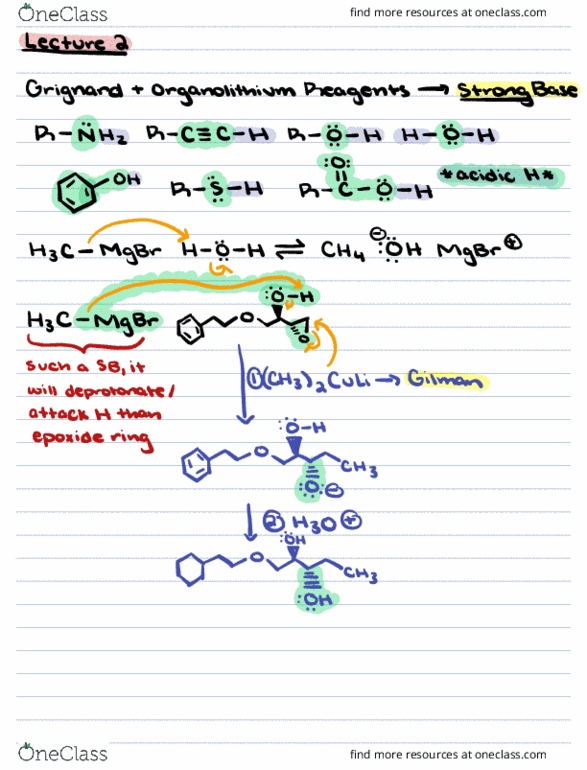 OneClass find more resources at oneclass.com
Lecture 2
Grignard + Organolithium Reagents → Strong Base
R-N̈H₂ R-C≡C-H R-Ö-H H-Ö-H
OH R-S̈-H R-C-Ö-H *acidic H*
:O:
H₃C-MgBr H-Ö-H ⇌ CH₄ ⊖:ÖH MgBr⊕
:Ö-H
H₃C-MgBr O O
such a SB, it
will deprotonate/
attack H than
epoxide ring
①(CH₃)₂CuLi → Gilman
:Ö-H
O CH₃
:Ö:⊖
② H₃O⊕
:ÖH
O CH₃
:ÖH
OneClass find more resources at oneclass.com